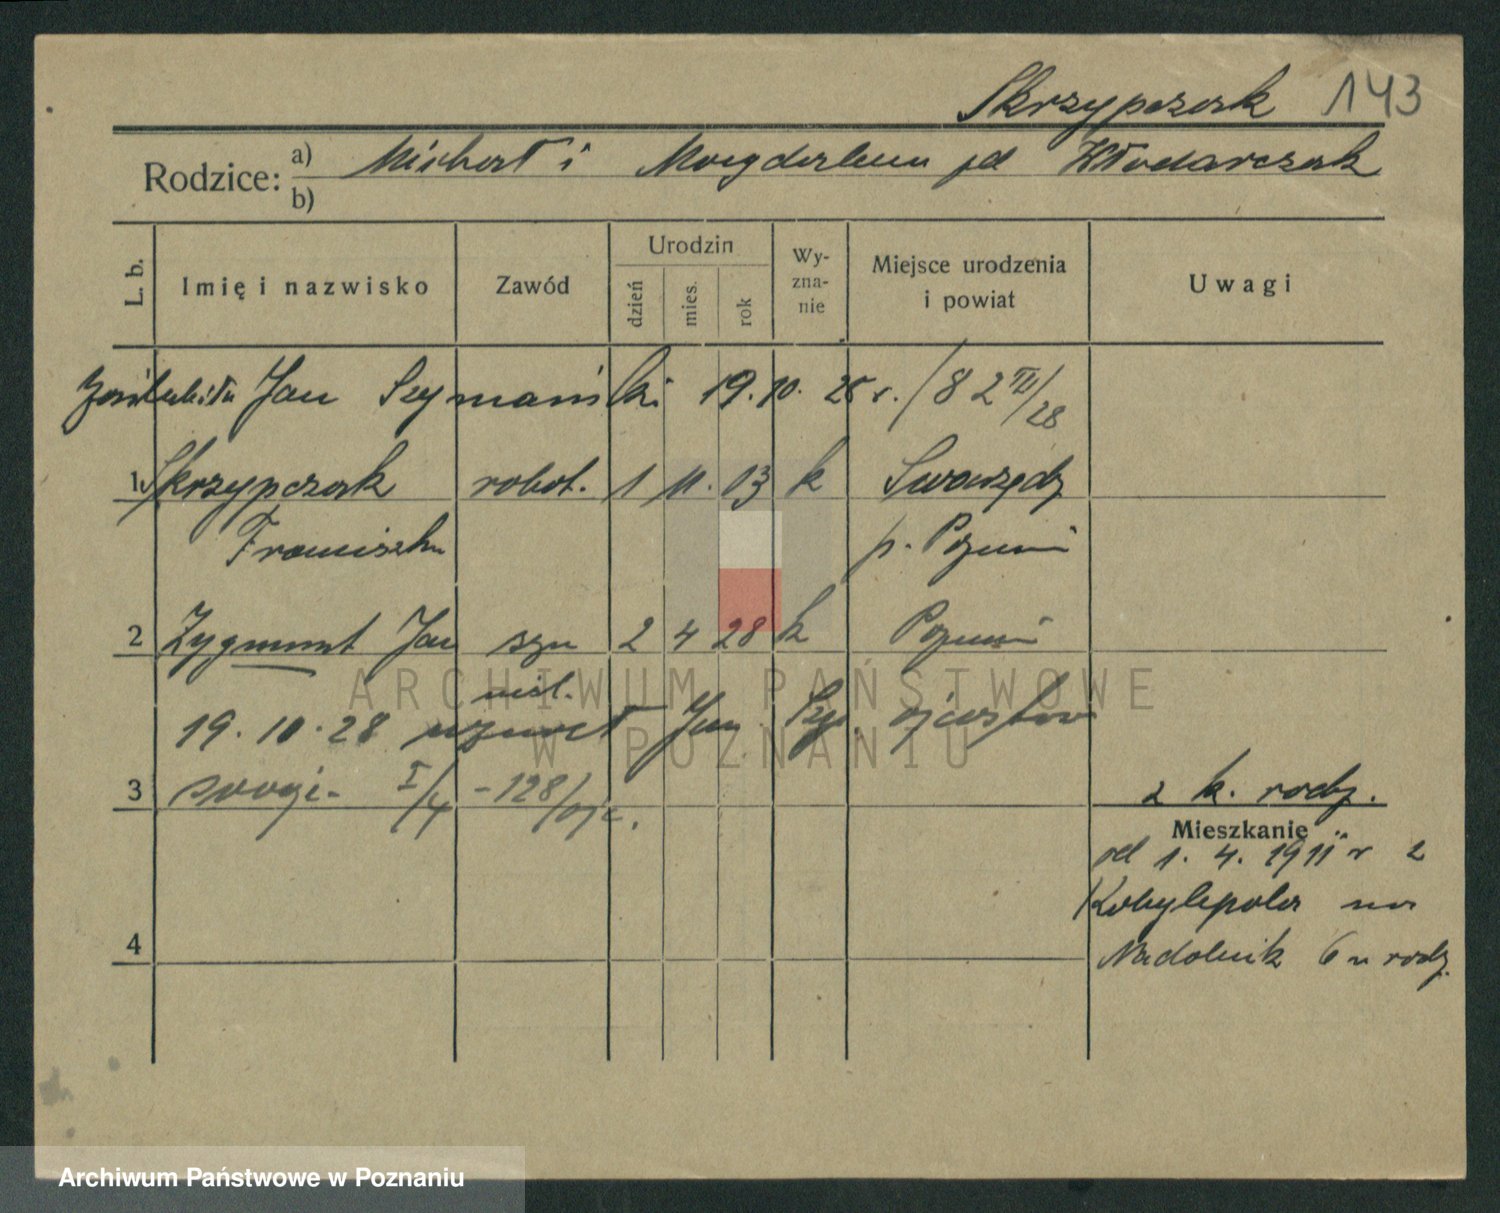 Skrzypczak 143
Rodzice: a) Michał i Magdalena pd Włodarczak
b)
L. b. Imię i nazwisko Zawód Urodzin dzień mies. rok Wy-zna-nie Miejsce urodzenia i powiat Uwagi
Jan Szymański 19. 10. 28 r. /
1 Skrzypczak robot. 1 11. 13 k Swarzędz
Franciszka p. Poznań
2 Zygmunt Jan syn 2 4 28 k Poznań
niśl.
19. 10. 28 uznał Jan Szy. ojcostwo
3 - 128/ojc. 2 k. rodz.
Mieszkanie
od 1. 4. 1911 r 2
Kobylepole na
4 Nadolnik 6 u rodz.
ARCHIWUM PAŃSTWOWE
W POZNANIU
Archiwum Państwowe w Poznaniu